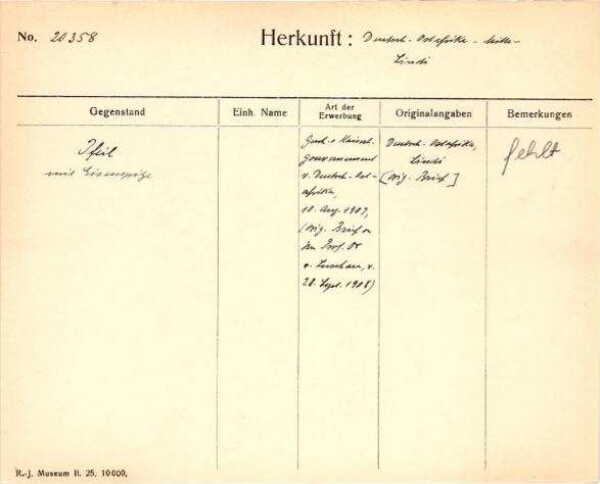 No. 20358
Herkunft: Deutsch-Ostafrika -
Lindi
Gegenstand
Einh. Name
Art der
Erwerbung
Originalangaben
Bemerkungen
Pfeil
mit Eisenspitze
Gesch. v. Kaiserl.
Gouvernement
v. Deutsch-Ost-
afrika,
10. Aug. 1907,
(Orig. Brief v
den Prof. Dr
v. Luschan, v.
28. Sept. 1908)
Deutsch-Ostafrika,
Lindi
[Orig. Brief]
fehlt
R.-J. Museum II. 25, 10000,